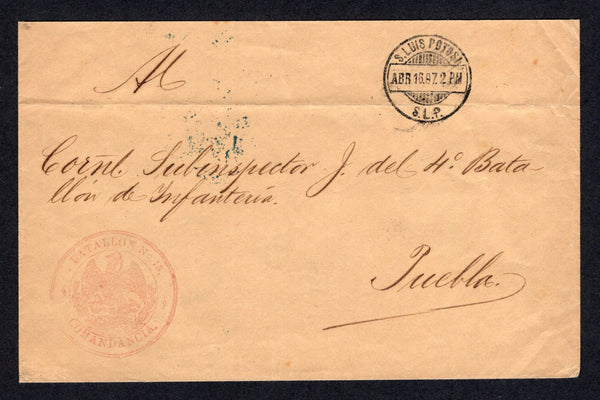 Al
S. LUIS POTOSI
ABR 16.97. 2 PM
S.L.P.
Corñl. Subinspector J. del 4º. Bata-
llón de Infantería.
Puebla.
BATALLON N. 15.
COMANDANCIA.